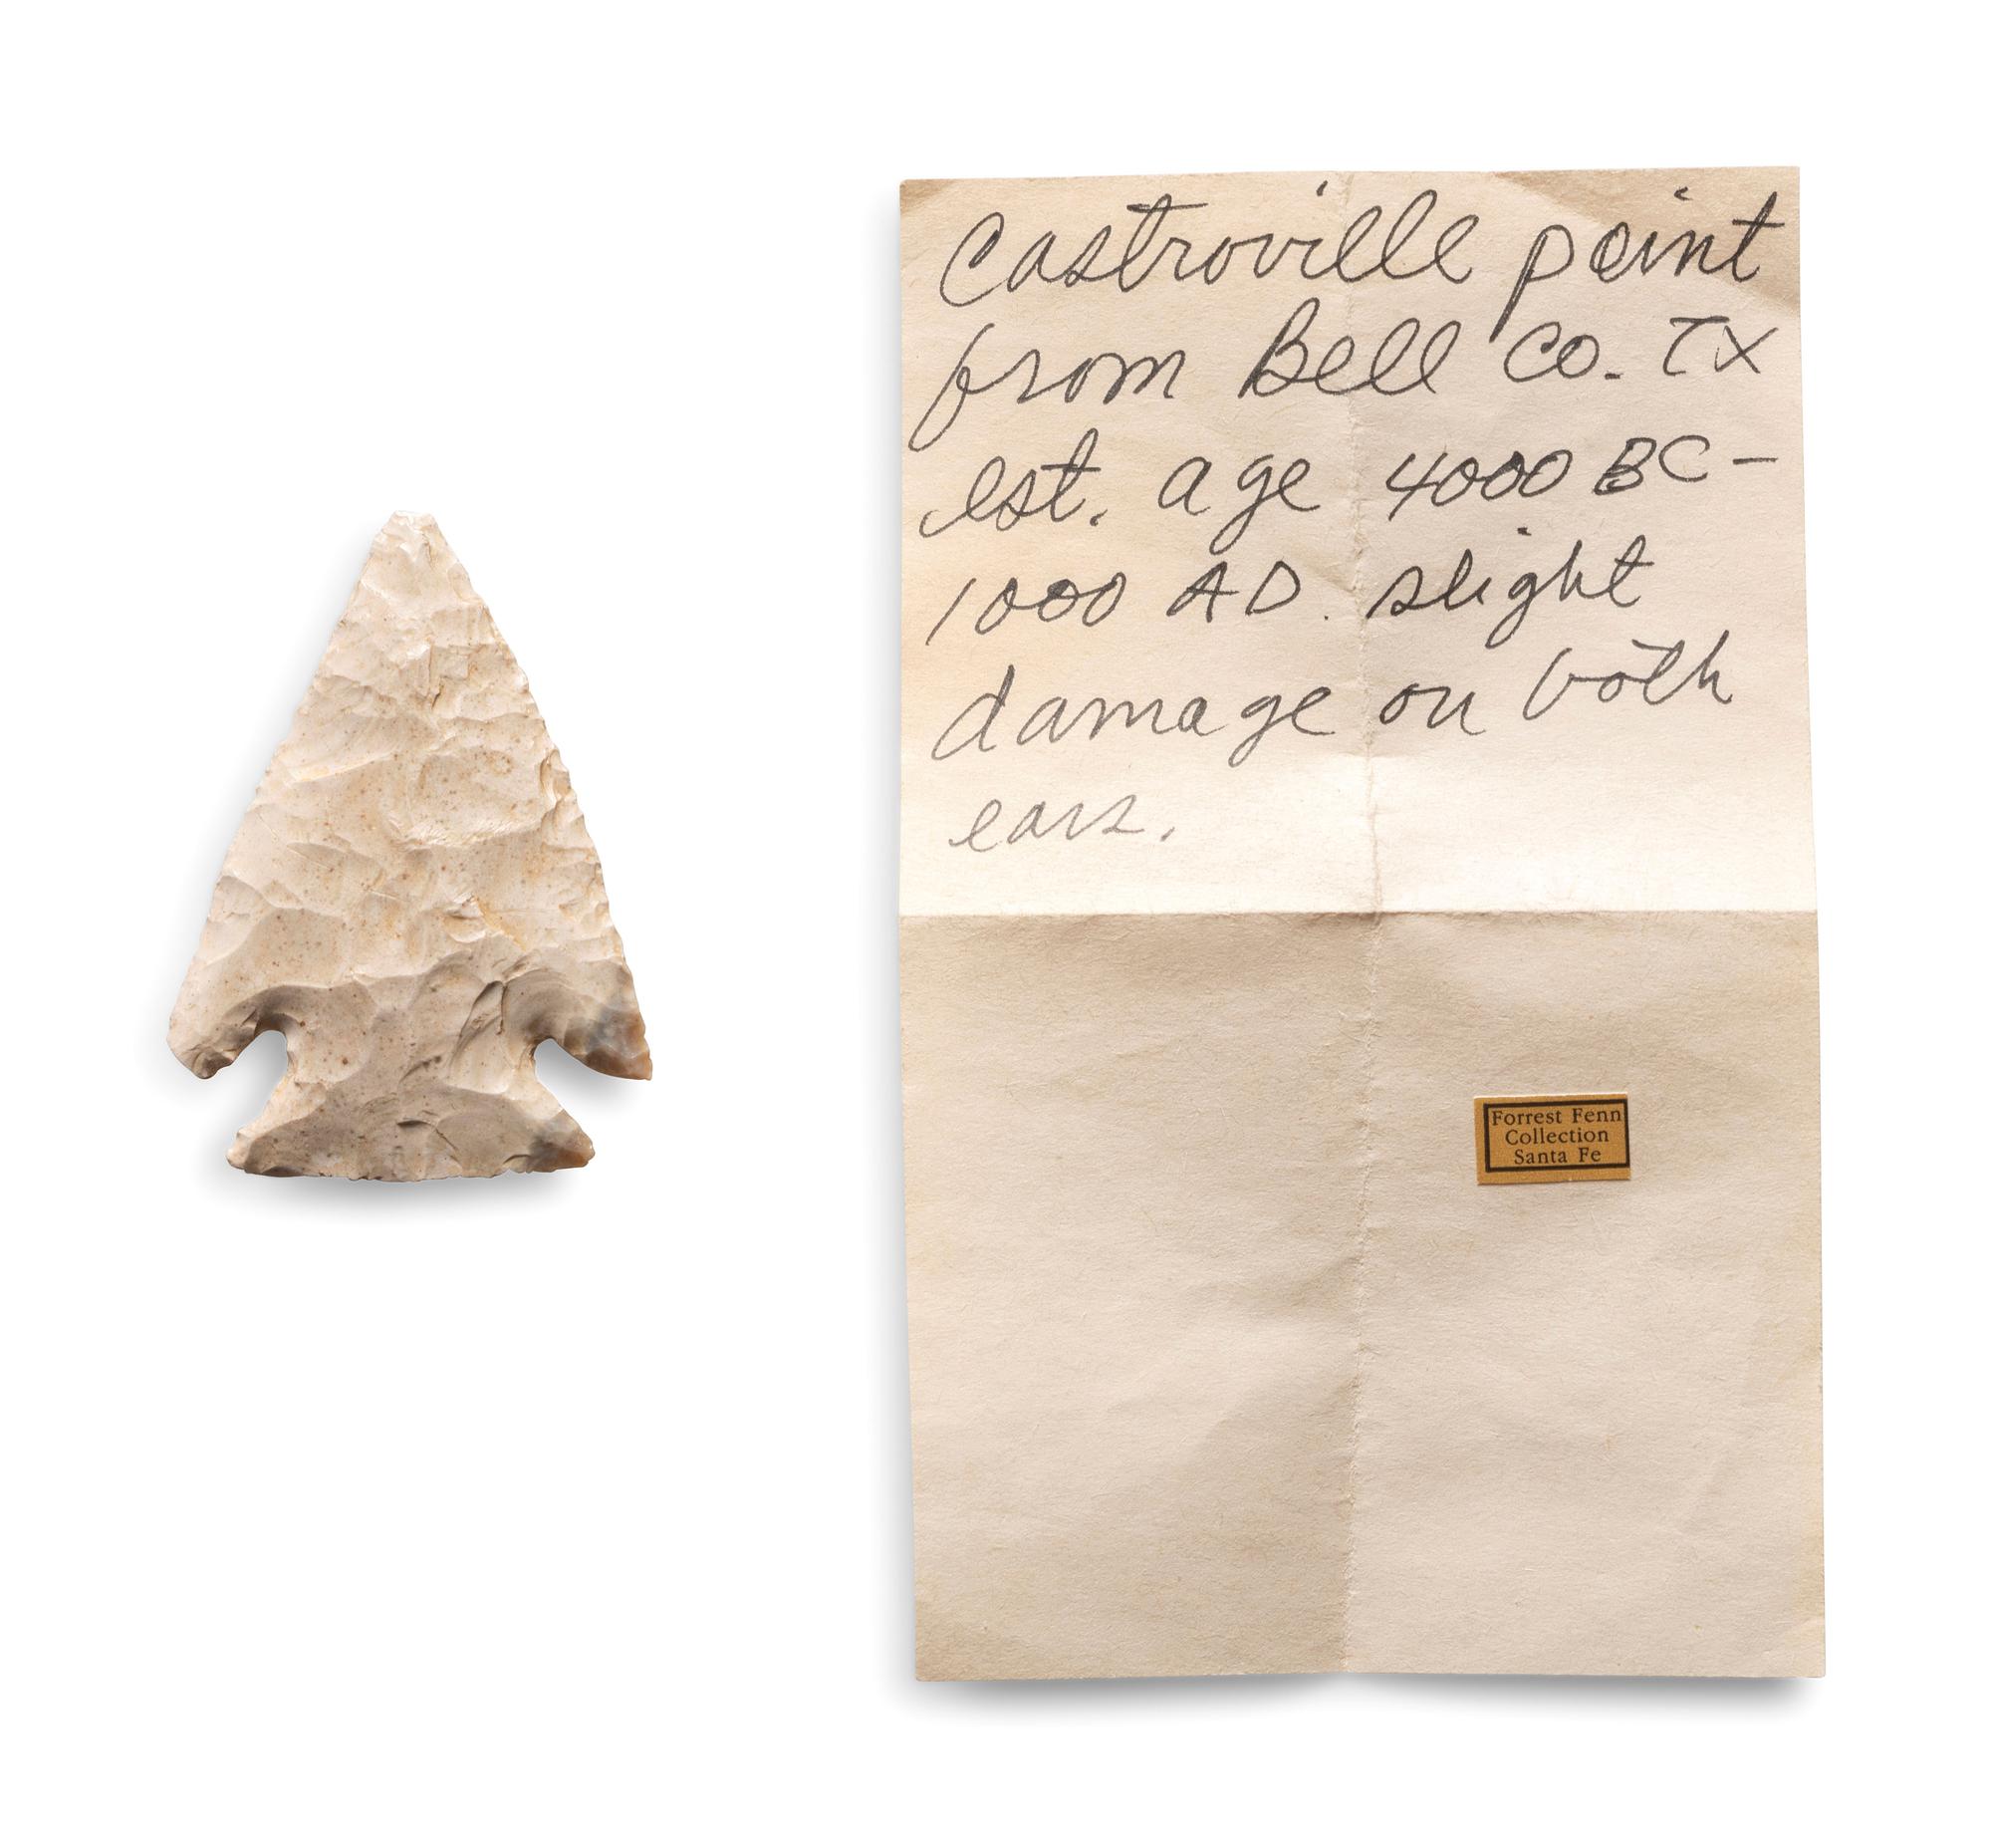 Castroville point
from Bell Co. TX
est. age 4000 BC -
1000 AD. slight
damage on both
ears.
Forrest Fenn
Collection
Santa Fe